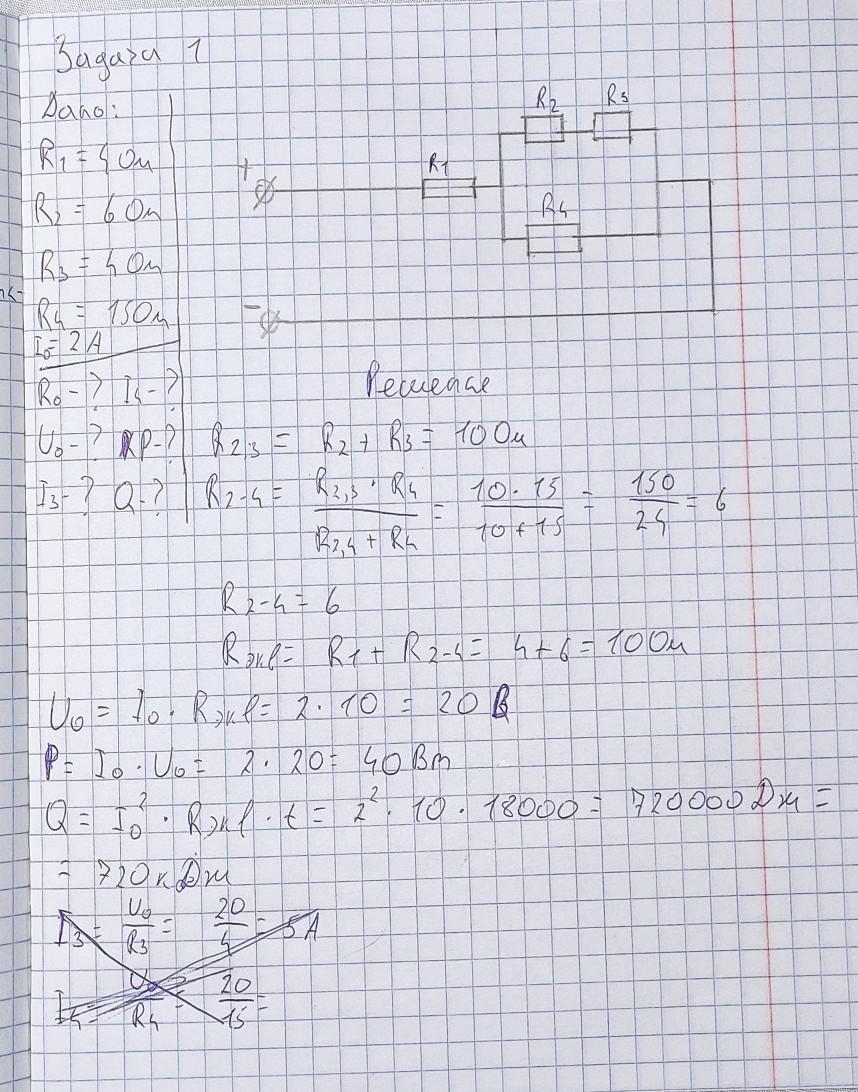 Задача 1
Дано:
R1 = 4 Ом
R2 = 6 Ом
R3 = 4 Ом
R4 = 15 Ом
I0 = 2 А
R0 - ? I4 - ?
U0 - ? P - ?
I3 - ? Q - ?
+
-
R1
R2 R3
R4
Решение
R2,3 = R2 + R3 = 10 Ом
R2-4 = R2,3 · R4 / R2,4 + R4 = 10 · 15 / 10 + 15 = 150 / 24 = 6
R2-4 = 6
Rэкв = R1 + R2-4 = 4 + 6 = 10 Ом
U0 = I0 · Rэкв = 2 · 10 = 20 В
P = I0 · U0 = 2 · 20 = 40 Вт
Q = I0² · Rэкв · t = 2² · 10 · 18000 = 720000 Дж =
= 720 кДж
I3 = U0 / R3 = 20 / 4 = 5 А
I4 = U0 / R4 = 20 / 15 =